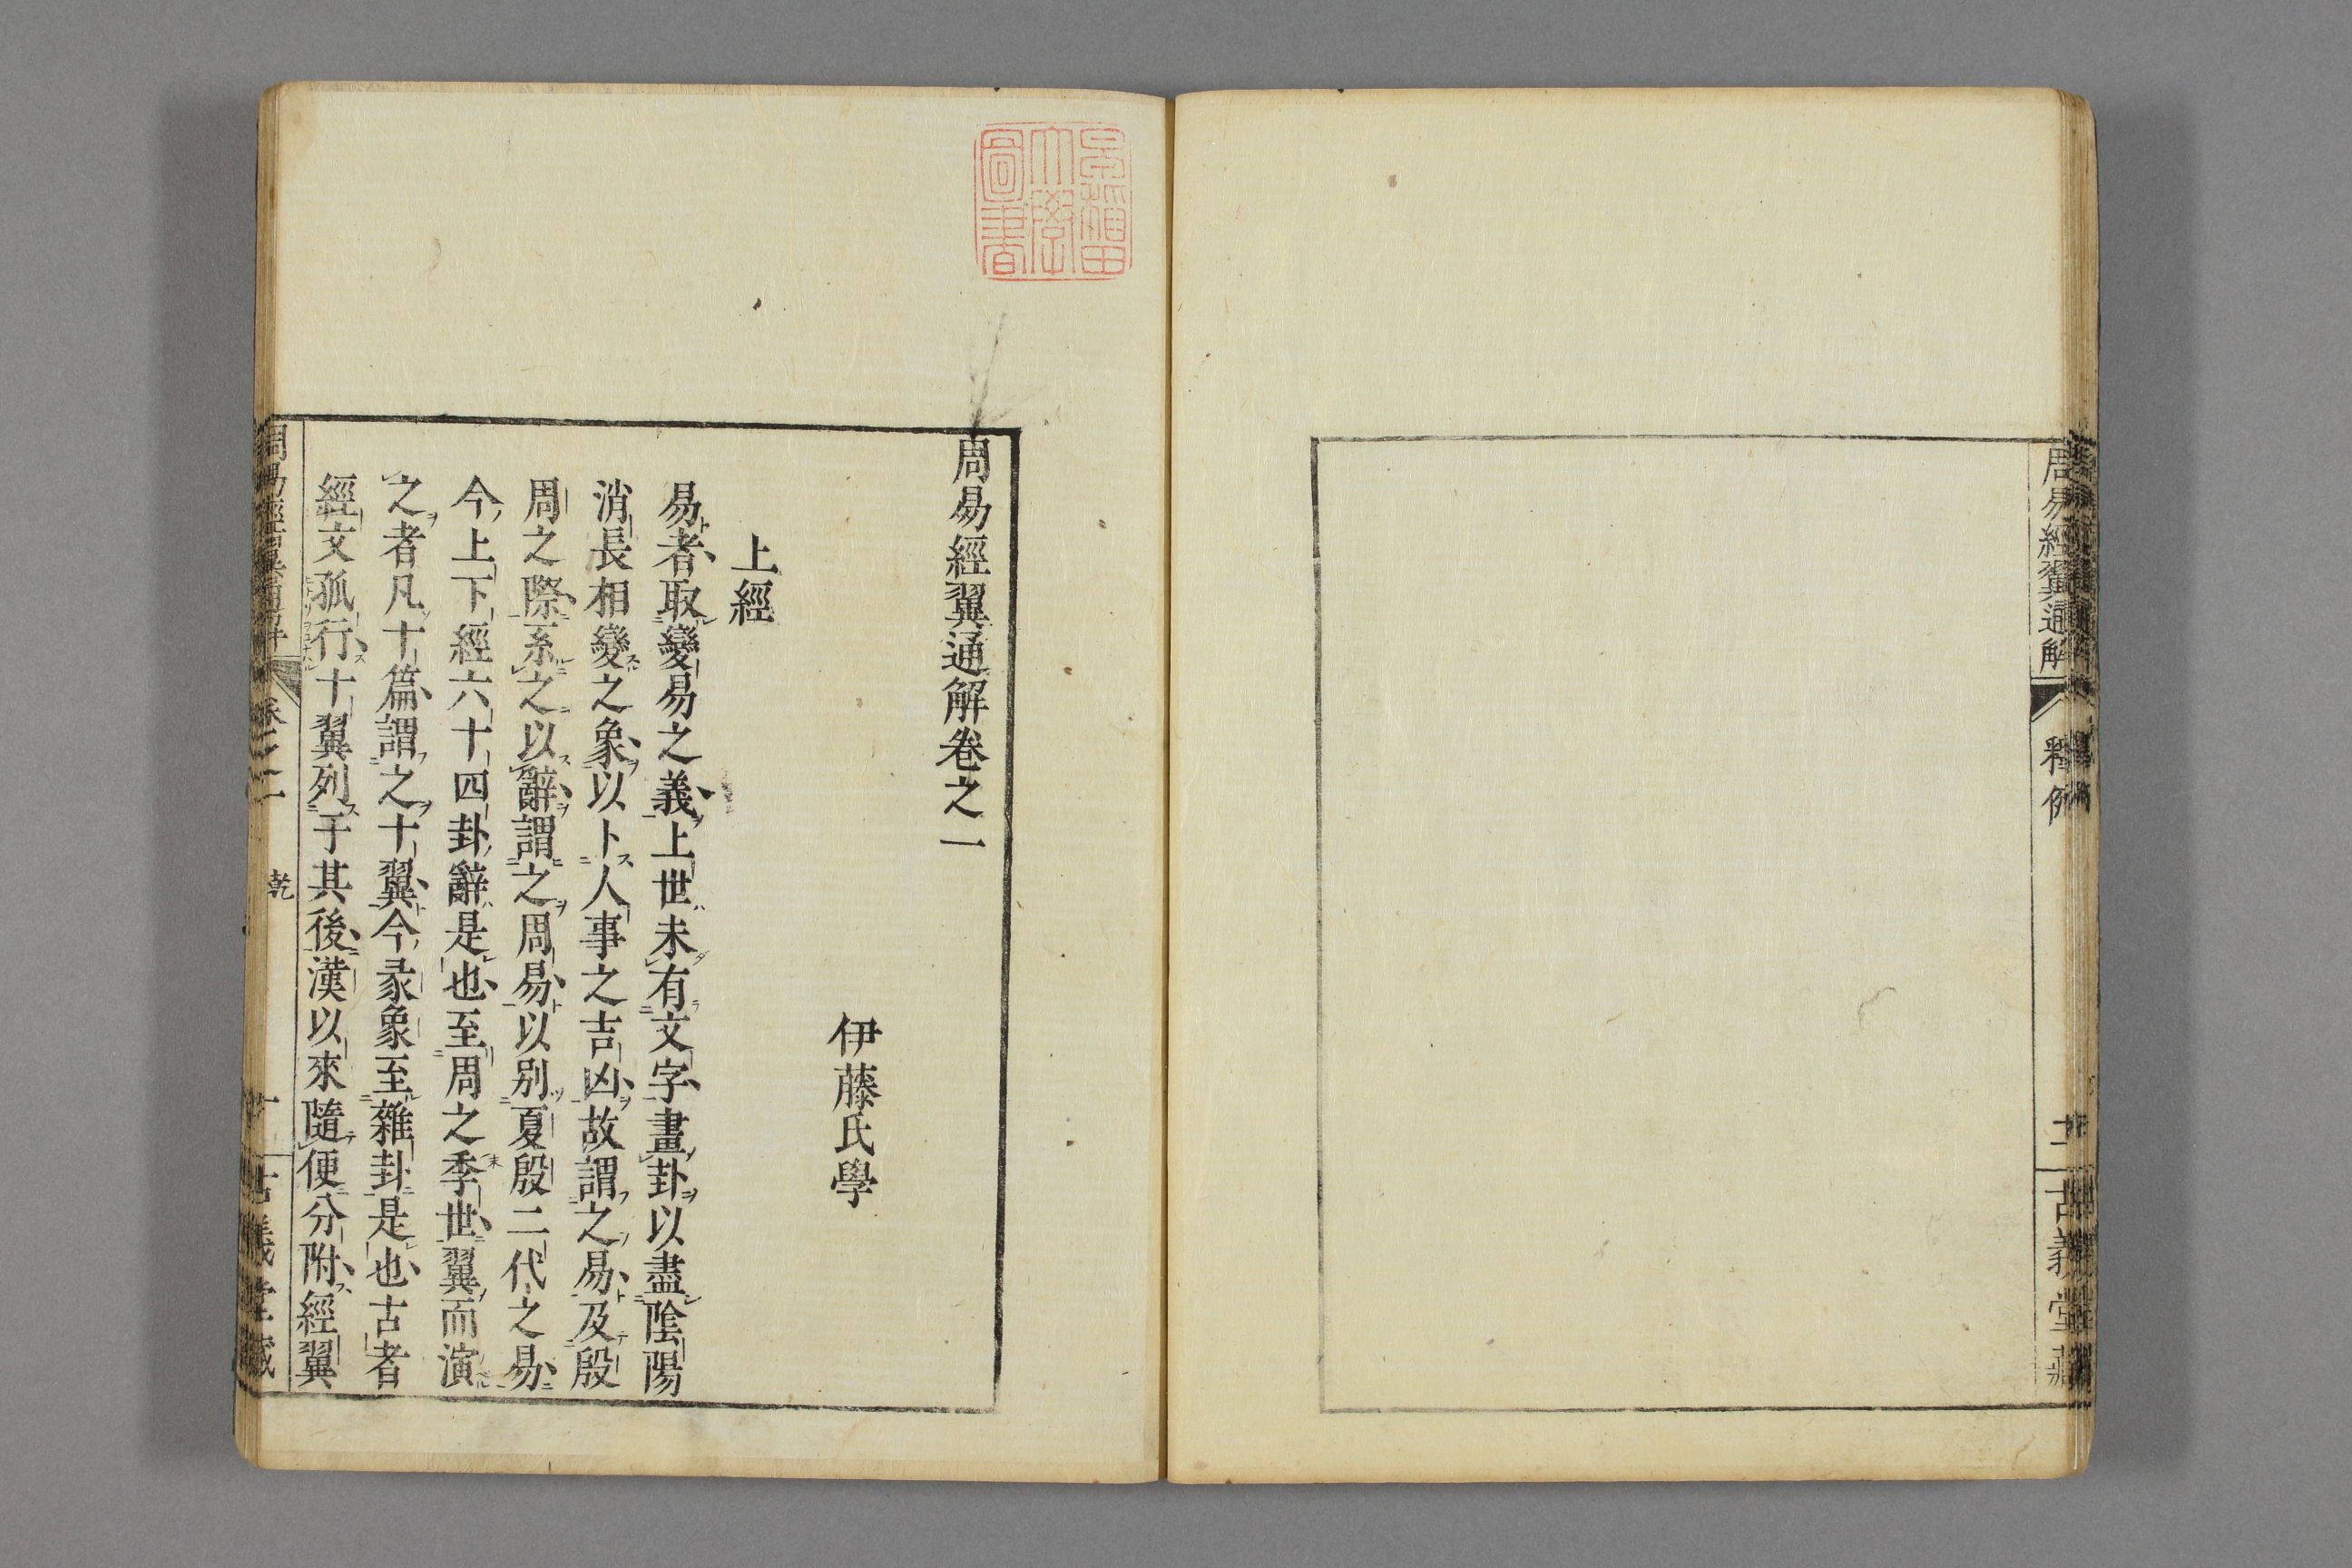 周易經翼通解
釋例
古義堂藏
早稲田
大學
圖書
周易經翼通解卷之一
伊藤氏學
上經
易者取變易之義上世未有文字畫卦以盡陰陽
消長相變之象以卜人事之吉凶故謂之易及殷
周之際系之以辭謂之周易以別夏殷二代之易
今上下經六十四卦辭是也至周之季世翼而演
之者凡十篇謂之十翼今彖象至雜卦是也古者
經文孤行十翼列于其後漢以來隨便分附經翼
周易經翼通解
卷之一
乾
一
古義堂藏